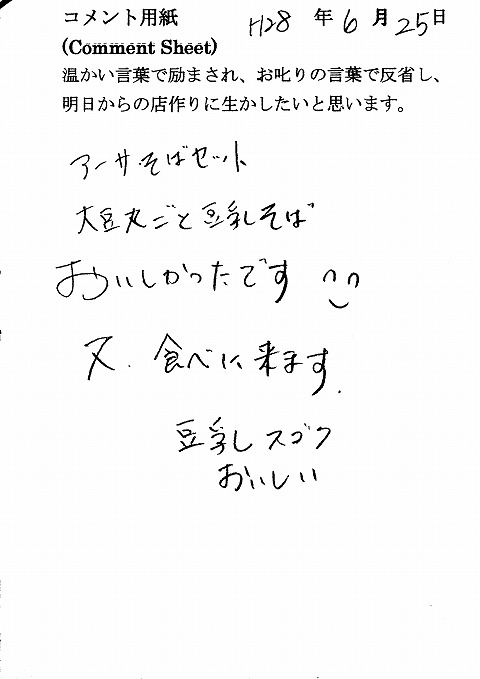 コメント用紙 H28 年 6 月 25 日
(Comment Sheet)
温かい言葉で励まされ、お叱りの言葉で反省し、
明日からの店作りに生かしたいと思います。
アーサ・そばセット
大豆丸ごと豆乳そば
おいしかったです
又、食べに来ます.
豆乳スゴク
おいしい